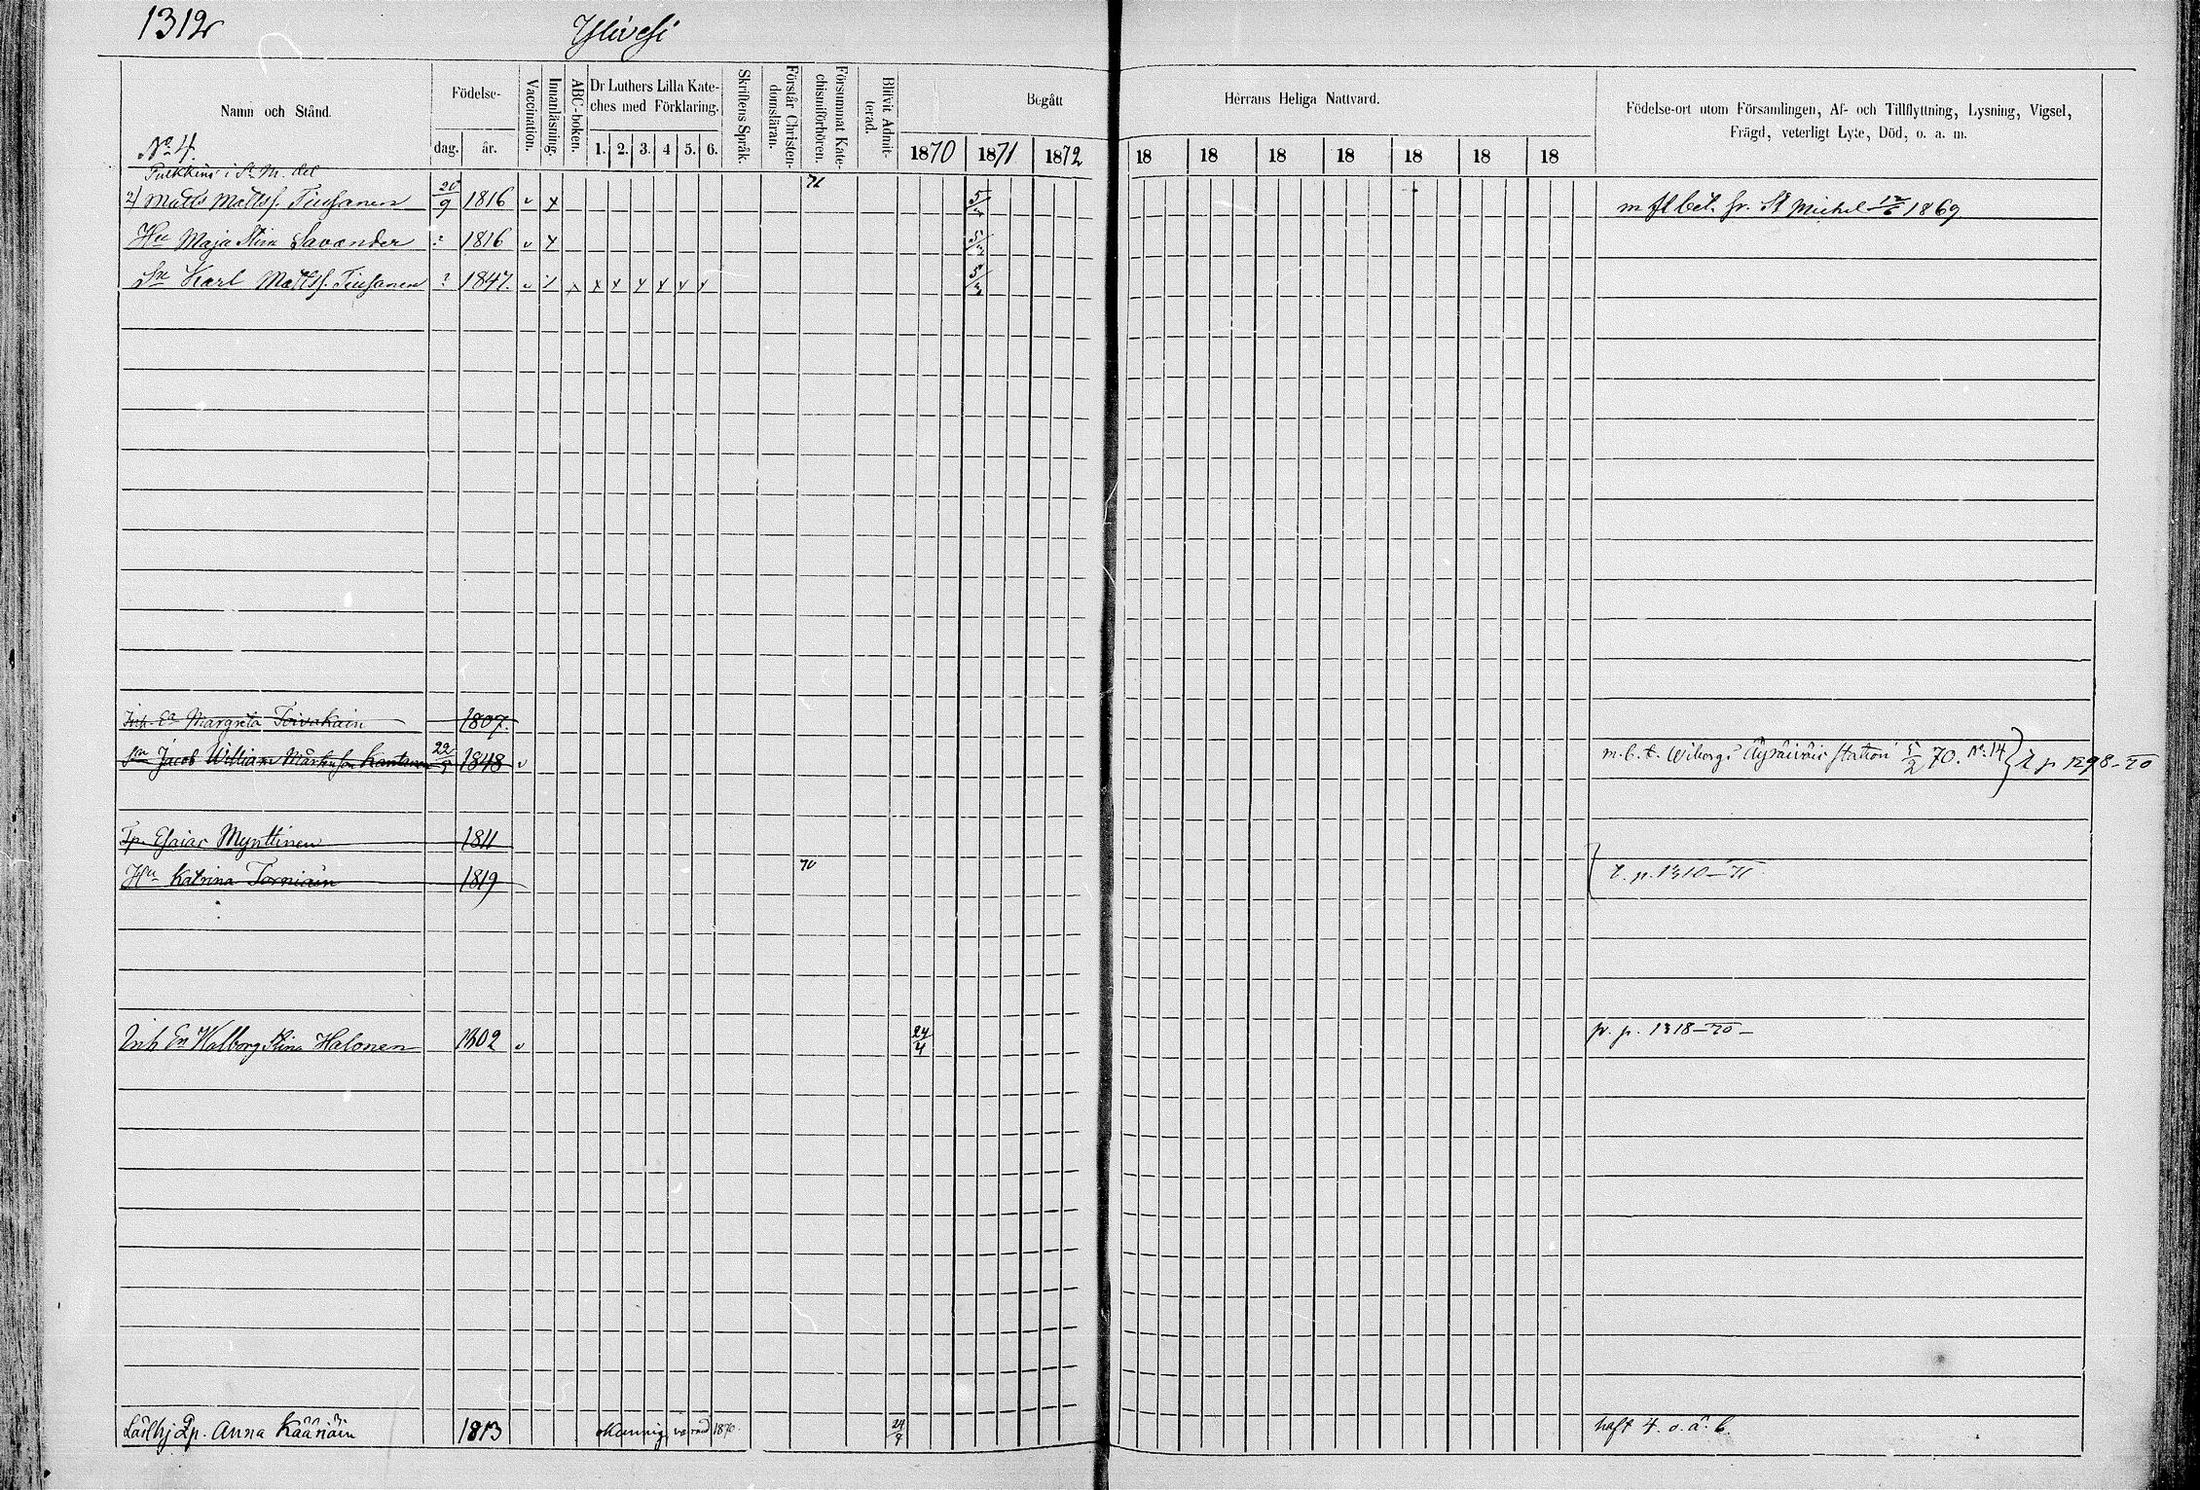 1312
Ylivesi
Namn och Stånd.
Födelse-
dag. år.
Vaccination.
Innanläsning.
ABC-boken.
Dr Luthers Lilla Kate-
ches med Förklaring.
1. 2. 3. 4 5. 6.
Skriftens Språk.
Förstår Christen-
domsläran.
Försummat Kate-
chismiförhören.
Blifvit Admit-
terad.
Begått
1870 1871 1872
Herrans Heliga Nattvard.
18 18 18 18 18 18 18
Födelse-ort utom Församlingen, Af- och Tillflyttning, Lysning, Vigsel,
Frägd, veterligt Lyte, Död, o. a. m.
No 4.
Pulkkins i St. M. del
2) Matts Mattss. Tiusanen 20/9 1816 v x 71 m flbet. fr. St Michel 1869
Hu Maja Stina Savander ? 1816 v x
Sn Karl Mattss. Tiusanen ? 1847. v x x x x x x x
Inh. Ea Margreta Toivakain 1807.
Sn Jacob William Mårtensson 22 1848 v m. b. t. Wiborgs Äyräväis station 5/2 70. No. 14 } t. p 1298-70
Tp. Esaias Mynttinen 1811
Hu Katrina Torniain 1819 70 t. p. 1310-71
Inh Ea Walborg Stina Halonen 1802 v 24/4 fr. p. 1318-70-
Anna Kääriäin 1813 okunnig 1870 haft 4. o. ä. b.